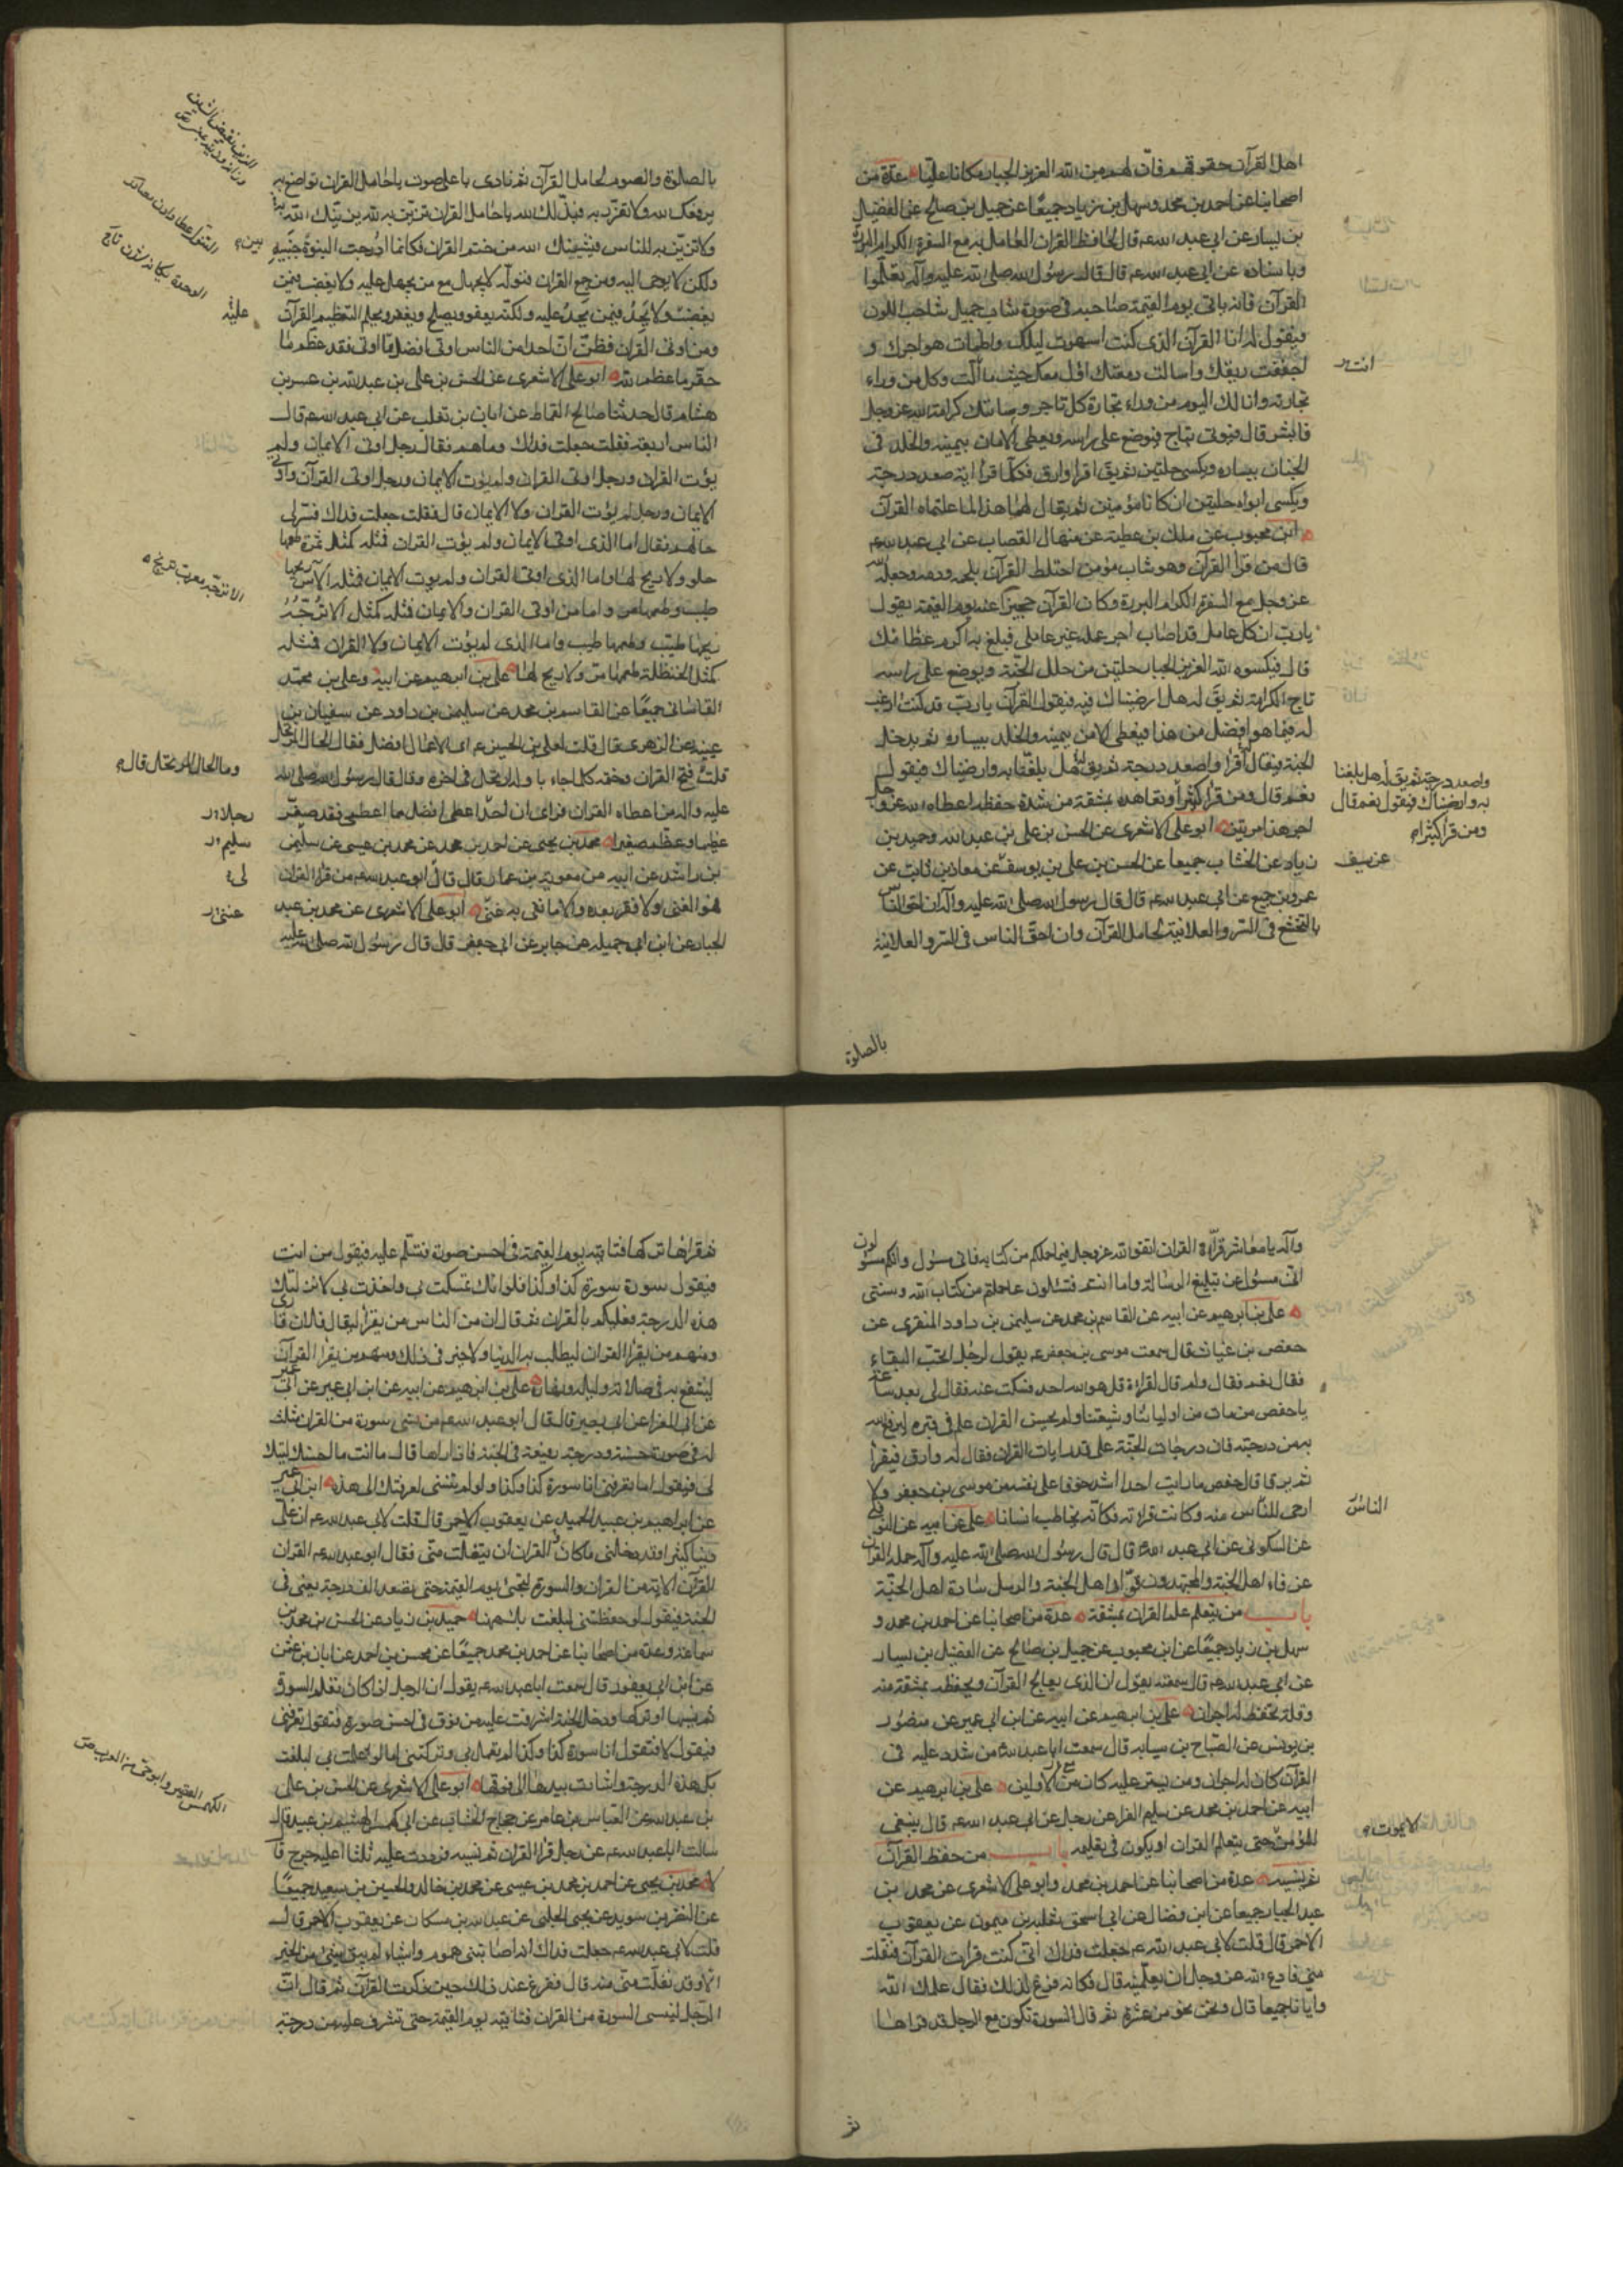 اهل القرآن حقوقهم فان لهم من الله العزيز الجبار مكانا عليا عدة من
اصحابنا عن احمد بن محمد وسهل بن زياد جميعا عن جميل بن صالح عن الفضيل
بن يسار عن ابي عبد الله ع قال الحافظ للقران العامل به مع السفرة الكرام البررة
وباسناده عن ابي عبد الله ع قال قال رسول الله صلى الله عليه وآله تعلموا
القرآن فانه ياتي يوم القيمة صاحبه في صورة شاب جميل شاحب اللون
فيقول له انا القرآن الذي كنت اسهرت ليلك واظمات هواجرك و
اجففت ريقك واسالت دمعتك اؤل معك حيث ما الت وكل من وراء
تجارته وانا لك اليوم من وراء تجارة كل تاجر وسياتيك كرامة الله عز وجل
فابشر قال فيؤتى بتاج فيوضع على راسه ويعطى الامان بيمينه والخلد في
الجنان بيساره ويكسى حلتين ثم يقال اقرا وارق فكلما قرا اية صعد درجة
ويكسى ابواه حلتين ان كانا مؤمنين ثم يقال لهما هذا لما علمتماه القرآن
ابن محبوب عن ملك بن عطية عن منهال القصاب عن ابي عبد الله ع
قال من قرا القرآن وهو شاب مؤمن اختلط القرآن بلحمه ودمه وجعله الله
عز وجل مع السفرة الكرام البررة وكان القرآن حجيزا عنه يوم القيمة يقول
يا رب ان كل عامل قد اصاب اجر عمله غير عاملي فبلغ به اكرم عطائك
قال فيكسوه الله العزيز الجبار حلتين من حلل الجنة ويوضع على راسه
تاج الكرامة ثم يقال له هل ارضيناك فيه فيقول القرآن يا رب قد كنت ارغب
له فيما هو افضل من هذا فيعطى الامن بيمينه والخلد بيساره ثم يدخل
الجنة فيقال له اقرا واصعد درجة ثم يقال له هل بلغنا به وارضيناك فيقول
نعم قال ومن قرا كثيرا وتعاهده بمشقة من شدة حفظه اعطاه الله عز وجل
اجر هذا مرتين ابو علي الاشعري عن الحسن بن علي بن عبد الله وحميد بن
زياد عن الخشاب جميعا عن الحسن بن علي بن يوسف عن معاذ بن ثابت عن
عمرو بن جميع عن ابي عبد الله ع قال قال رسول الله صلى الله عليه وآله ان احق الناس
بالتخشع في السر والعلانية لحامل القرآن وان احق الناس في السر والعلانية
واصعد درجة ثم يقال له هل بلغنا
به وارضيناك فيقول نعم قال
ومن قرا كثيرا
عن سيف
بالصلوة
بالصلوة والصوم لحامل القرآن ثم نادى باعلى صوت يا حامل القران تواضع به
يرفعك الله ولا تعزز به فيذلك الله يا حامل القران تزين به لله يزينك الله به
ولا تزين به للناس فيشينك الله من ختم القران فكانما ادرجت النبوة بين جنبيه
ولكن لا يوحى اليه ومن جمع القران فنوله لا يجهل مع من يجهل عليه ولا يغضب فيمن
يغضب عليه ولا يحد فيمن يحد عليه ولكنه يعفو ويصفح ويغفر ويحلم لتعظيم القرآن
ومن اوتي القران فظن ان احدا من الناس اوتي افضل مما اوتي فقد عظم ما
حقر الله وحقر ما عظم الله ابو علي الاشعري عن الحسن بن علي بن عبد الله بن عبيس بن
هشام قال حدثنا صالح القماط عن ابان بن تغلب عن ابي عبد الله ع قال
الناس اربعة فقلت جعلت فداك وما هم فقال رجل اوتي الايمان ولم
يؤت القران ورجل اوتي القران ولم يؤت الايمان ورجل اوتي القرآن واوتي
الايمان ورجل لم يؤت القران ولا الايمان قال فقلت جعلت فداك فسر لي
حالهم فقال اما الذي اوتي الايمان ولم يؤت القران فمثله كمثل تمرة طعمها
حلو ولا ريح لها واما الذي اوتي القران ولم يؤت الايمان فمثله كمثل الآس ريحها
طيب وطعمها مر واما من اوتي القران والايمان فمثله كمثل الاترجة
ريحها طيب وطعمها طيب واما الذي لم يؤت الايمان ولا القران فمثله
كمثل الحنظلة طعمها مر ولا ريح لها علي بن ابراهيم عن ابيه وعلي بن محمد
القاساني جميعا عن القاسم بن محمد عن سليمن بن داود عن سفيان بن
عيينة عن الزهري قال قلت لعلي بن الحسين ع اي الاعمال افضل فقال الحال المرتحل
قلت فتح القران وختمه كلما جاء باوله ارتحل في اخره وقال قال رسول الله صلى الله
عليه واله من اعطاه القران فراى ان احدا اعطي افضل مما اعطي فقد صغر
عظيما وعظم صغيرا محمد بن يحيى عن احمد بن محمد عن محمد بن عيسى عن سليمن
بن راشد عن ابيه عن معوية بن عمار قال قال ابو عبد الله ع من قرا القران
فهو الغني ولا فقر بعده والا ما نفى به غنى ابو علي الاشعري عن محمد بن عبد
الجبار عن ابن ابي جميلة عن جابر عن ابي جعفر قال قال رسول الله صلى الله عليه
بين
عليه
الاترجة معرب ترنج
وما الحال المرتحل قال
رجلا
سليم
لي
غنى
وآله يا معاشر قراء القران اتقوا الله عز وجل فيما حملكم من كتابه فاني مسؤل وانكم مسؤلون
اني مسؤل عن تبليغ الرسالة واما انتم فتسئلون عما حملتم من كتاب الله وسنتي
علي بن ابراهيم عن ابيه عن القاسم بن محمد عن سليمن بن داود المنقري عن
حفص بن غياث قال سمعت موسى بن جعفر ع يقول لرجل اتحب البقاء
فقال نعم فقال ولم قال لقراءة قل هو الله احد فسكت عنه فقال لي بعد ساعة
يا حفص من مات من اوليائنا وشيعتنا ولم يحسن القران علم في قبره ليرفع الله
به من درجته فان درجات الجنة على قدر ايات القران فقال له وارق فيقرا
ثم يرقا قال حفص ما رايت احدا اشد خوفا على نفسه من موسى بن جعفر ولا
ارجى للناس منه وكانت قراءته فكانه يخاطب انسانا علي عن ابيه عن النوفلي
عن السكوني عن ابي عبد الله ع قال قال رسول الله صلى الله عليه وآله حملة القران
عرفاء اهل الجنة والمجتهدون قواد اهل الجنة والرسل سادة اهل الجنة
باب من يتعلم علم القران بمشقة عدة من اصحابنا عن احمد بن محمد و
سهل بن زياد جميعا عن ابن محبوب عن جميل بن صالح عن الفضيل بن يسار
عن ابي عبد الله ع قال سمعته يقول ان الذي يعالج القرآن ويحفظه بمشقة منه
وقلة تحفظ له اجران علي بن ابراهيم عن ابيه عن ابن ابي عمير عن منصور
بن يونس عن الصباح بن سيابة قال سمعت ابا عبد الله ع من شدد عليه في
القرآن كان له اجران ومن يسر عليه كان مع الاولين علي بن ابراهيم عن
ابيه عن احمد بن محمد عن سليم الفراء عن رجل عن ابي عبد الله ع قال ينبغي
للمؤمن حتى يتعلم القران او يكون في تعليمه باب من حفظ القرآن
ثم نسيه عدة من اصحابنا عن احمد بن محمد وابو علي الاشعري عن محمد بن
عبد الجبار جميعا عن ابن فضال عن ابي اسحق ثعلبة بن ميمون عن يعقوب
الاحمر قال قلت لابي عبد الله ع جعلت فداك اني كنت قرات القرآن فتفلت
مني فادع الله عز وجل ان يعلمنيه قال فكانه فزع لذلك فقال علمك الله
وايانا جميعا قال ونحن نحو من عشرة ثم قال السورة تكون مع الرجل قد قراها
الناس
لا يموت
ثم
ثم قراها تركها فتاتيه يوم القيمة في احسن صورة فتسلم عليه فيقول من انت
فيقول سورة سورة كذا وكذا فلو انك تمسكت بي واخذت بي لانزلتك
هذه الدرجة فعليكم بالقران ثم قال ان من الناس من يقرا ليقال فلان قارئ
ومنهم من يقرا القران ليطلب به الدنيا ولا خير في ذلك ومنهم من يقرا القرآن
لينتفع به في صلاته وليله ونهاره علي بن ابراهيم عن ابيه عن ابن ابي عمير عن
عن ابي المغرا عن ابي بصير قال قال ابو عبد الله ع من نسي سورة من القران مثلت
له في صورة حسنة ودرجة رفيعة في الجنة فاذا راها قال ما انت ما احسنك ليتك
لي فيقول اما تعرفني انا سورة كذا وكذا ولو لم تنسني لرفعتك الى هذه ابن ابي عمير
عن ابراهيم بن عبد الحميد عن يعقوب الاحمر قال قلت لابي عبد الله ع ان علي
دينا كثيرا وقد دخلني ما كان القران ان يتفلت مني فقال ابو عبد الله ع القران
القرآن الاية من القران والسورة لتجئ يوم القيمة حتى تصعد الف درجة يعني في
الجنة فيقول لو حفظتني لبلغت بك هيهنا حميد بن زياد عن الحسن بن محمد بن
سماعة وعدة من اصحابنا عن احمد بن محمد جميعا عن محسن بن احمد عن ابان بن عثمن
عن ابن ابي يعفور قال سمعت ابا عبد الله ع يقول ان الرجل اذا كان تعلم السورة
ثم نسيها او تركها ودخل الجنة اشرفت عليه من فوق في احسن صورة فتقول تعرفني
فيقول لا فتقول انا سورة كذا وكذا لم تعمل بي وتركتني اما لو عملت بي لبلغت
بك هذه الدرجة واشارت بيدها الى فوقها ابو علي الاشعري عن الحسن بن علي
بن عبد الله عن العباس بن عامر عن حجاج الخشاب عن ابي كهمس الهيثم بن عبيد قال
سالت ابا عبد الله ع عن رجل قرا القران ثم نسيه فرددت عليه ثلثا اعليه حرج قال
لا محمد بن يحيى عن احمد بن محمد بن عيسى عن محمد بن خالد والحسين بن سعيد جميعا
عن النضر بن سويد عن يحيى الحلبي عن عبد الله بن مسكان عن يعقوب الاحمر قال
قلت لابي عبد الله ع جعلت فداك انه اصابتني هموم واشياء لم يبق شئ من الخير
الا وقد تفلت مني منه قال ففزع عند ذلك حين ذكرت القرآن ثم قال ان
الرجل لينسى السورة من القران فتاتيه يوم القيمة حتى تشرف عليه من درجة